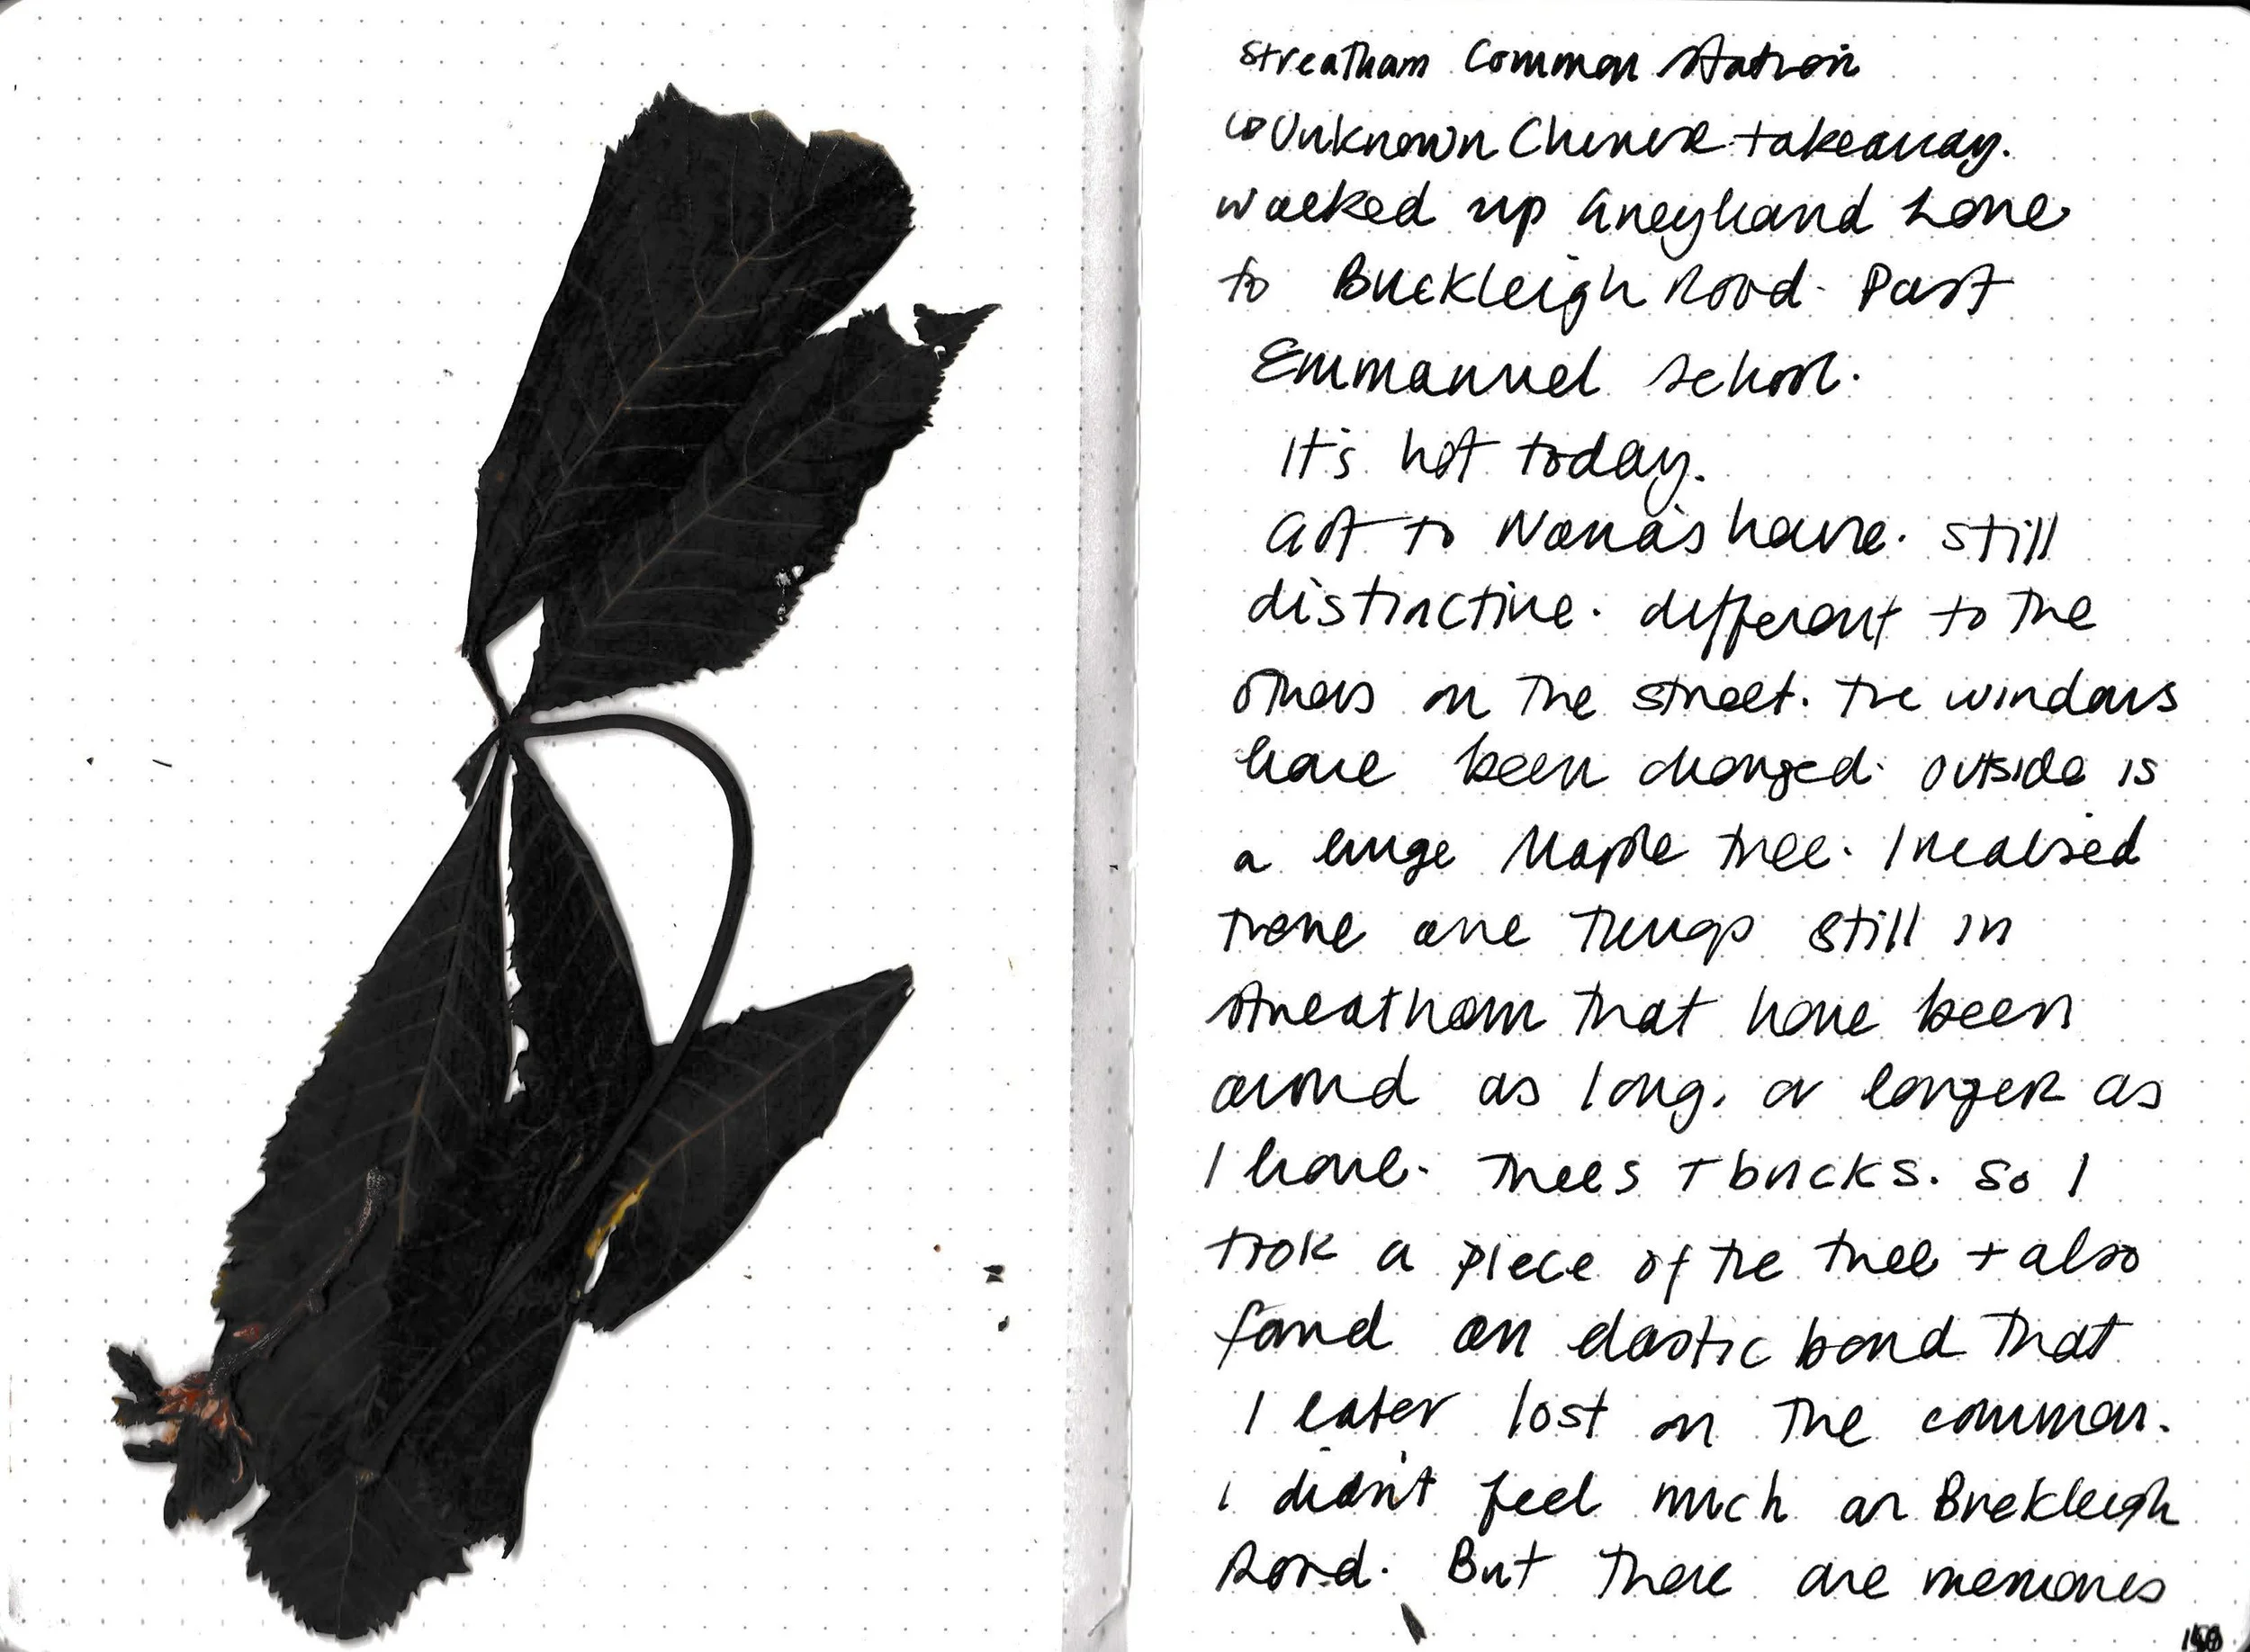 Streatham Common Station
↳ Unknown Chinese takeaway.
Walked up Greyhound Lane
to Buckleigh Road. Past
Emmanuel School.
It's hot today.
Got to Nana's house. Still
distinctive. different to the
others on the street. The windows
have been changed. Outside is
a huge Maple tree. I realised
there are things still in
Streatham that have been
around as long, or longer as
I have. Trees + bricks. So I
took a piece of the tree + also
found an elastic band that
I later lost on the common.
I didn't feel much on Buckleigh
Road. But there are memories